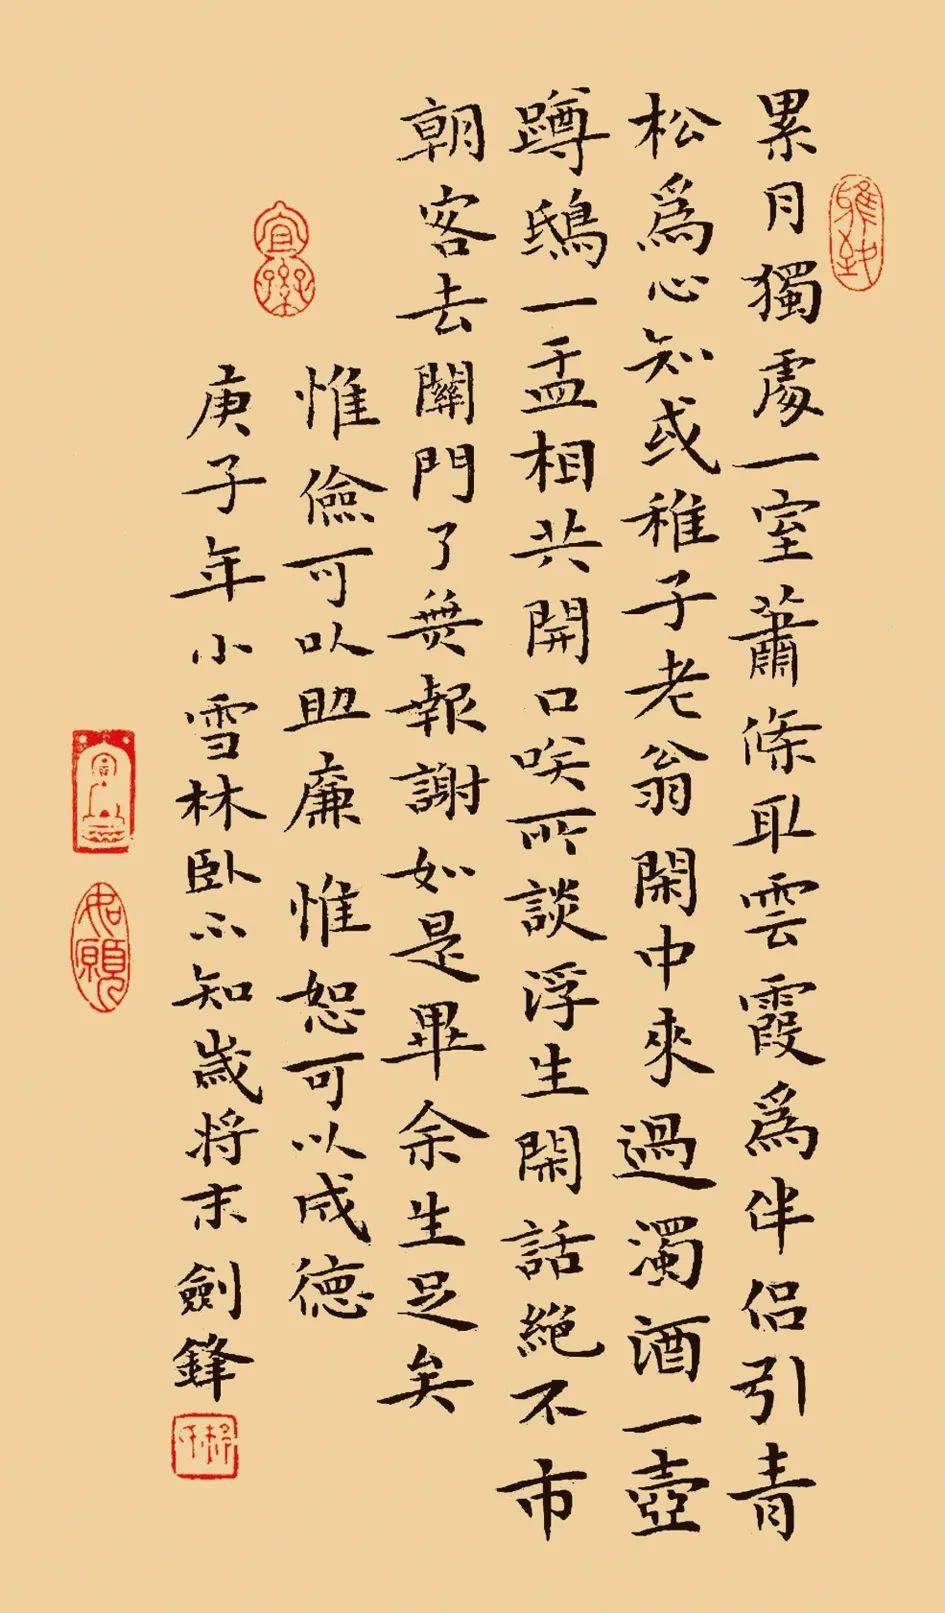 雅致
累月獨處一室蕭條取雲霞為伴侶引青
松為心知或稚子老翁閑中來過濁酒一壺
蹲鴟一盂相共開口咲所談浮生閑話絕不市
朝客去關門了無報謝如是畢余生足矣
惟儉可以助廉 惟恕可以成德
庚子年小雪林卧不知歲將末劍鋒
如願